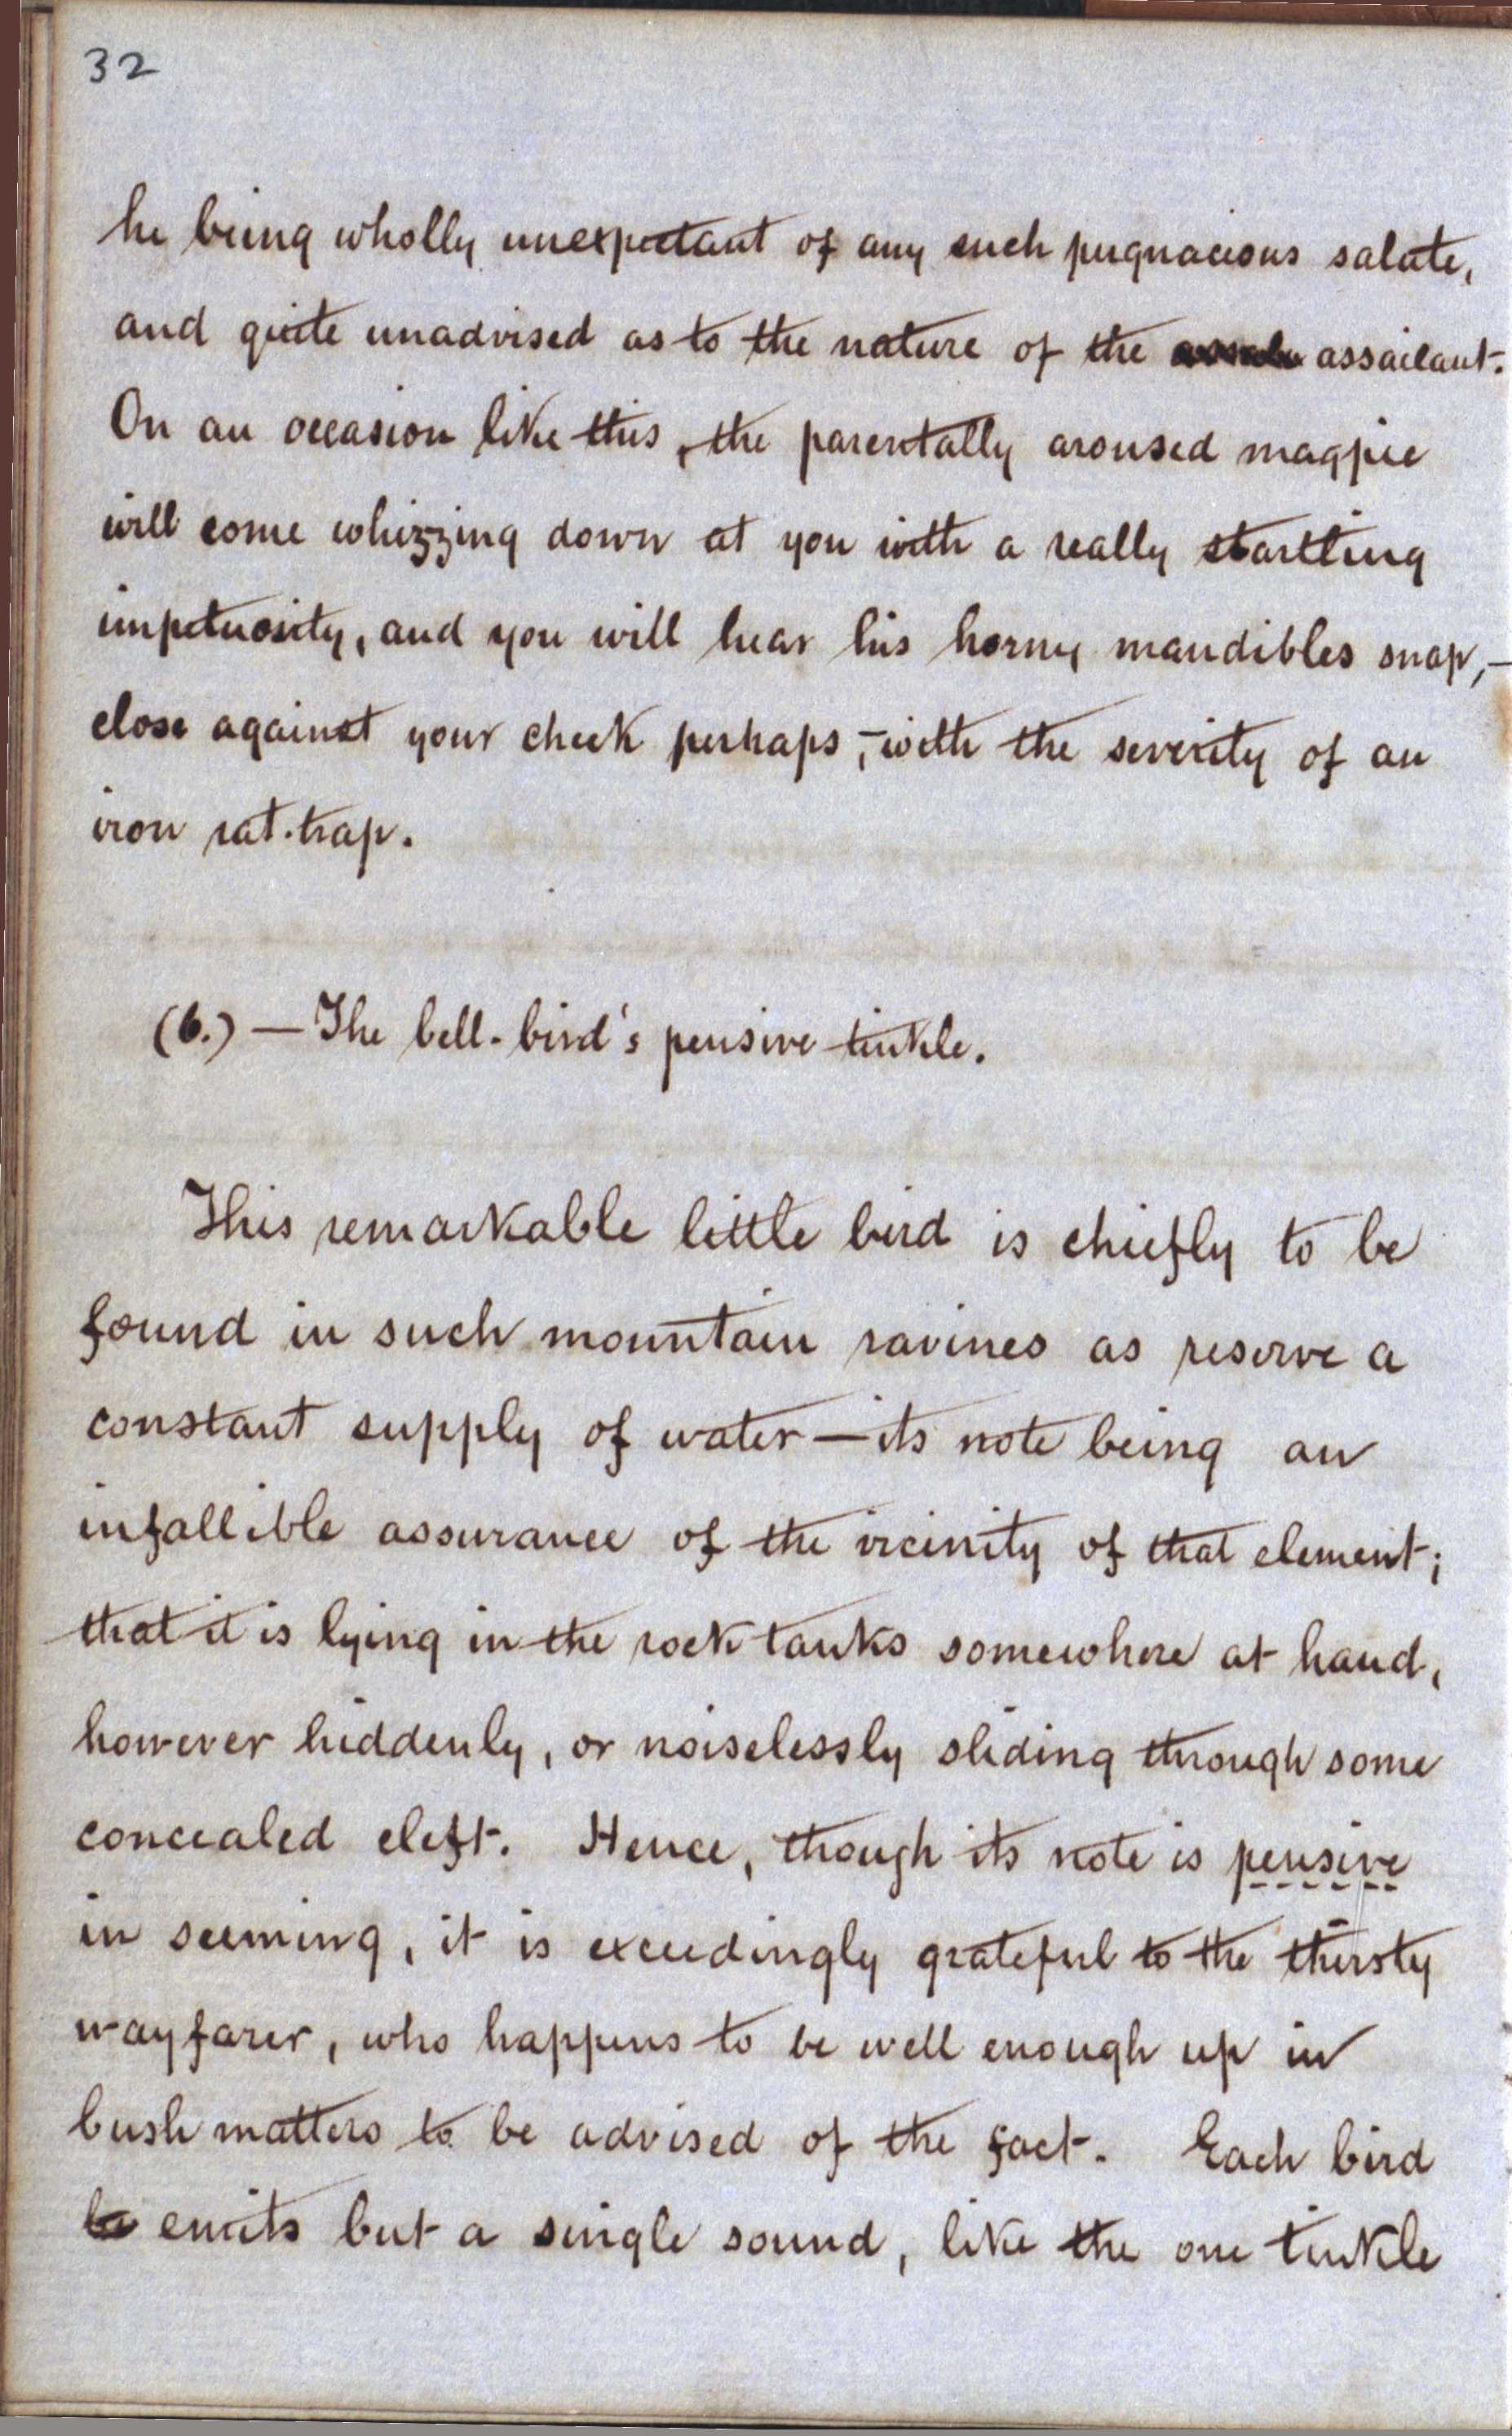 32
he being wholly unexpectant of any such pugnacious salute,
and quite unadvised as to the nature of the assailant.
On an occasion like this, the parentally aroused magpie
will come whizzing down at you with a really startling
impetuosity, and you will hear his horny mandibles snap,—
close against your cheek perhaps,—with the severity of an
iron rat-trap.
(6.) — The bell-bird's pensive tinkle.
This remarkable little bird is chiefly to be
found in such mountain ravines as reserve a
constant supply of water—its note being an
infallible assurance of the vicinity of that element;
that it is lying in the rock tanks somewhere at hand,
however hiddenly, or noiselessly sliding through some
concealed cleft. Hence, though its note is pensive
in seeming, it is exceedingly grateful to the thirsty
wayfarer, who happens to be well enough up in
bush matters to be advised of the fact. Each bird
emits but a single sound, like the one tinkle